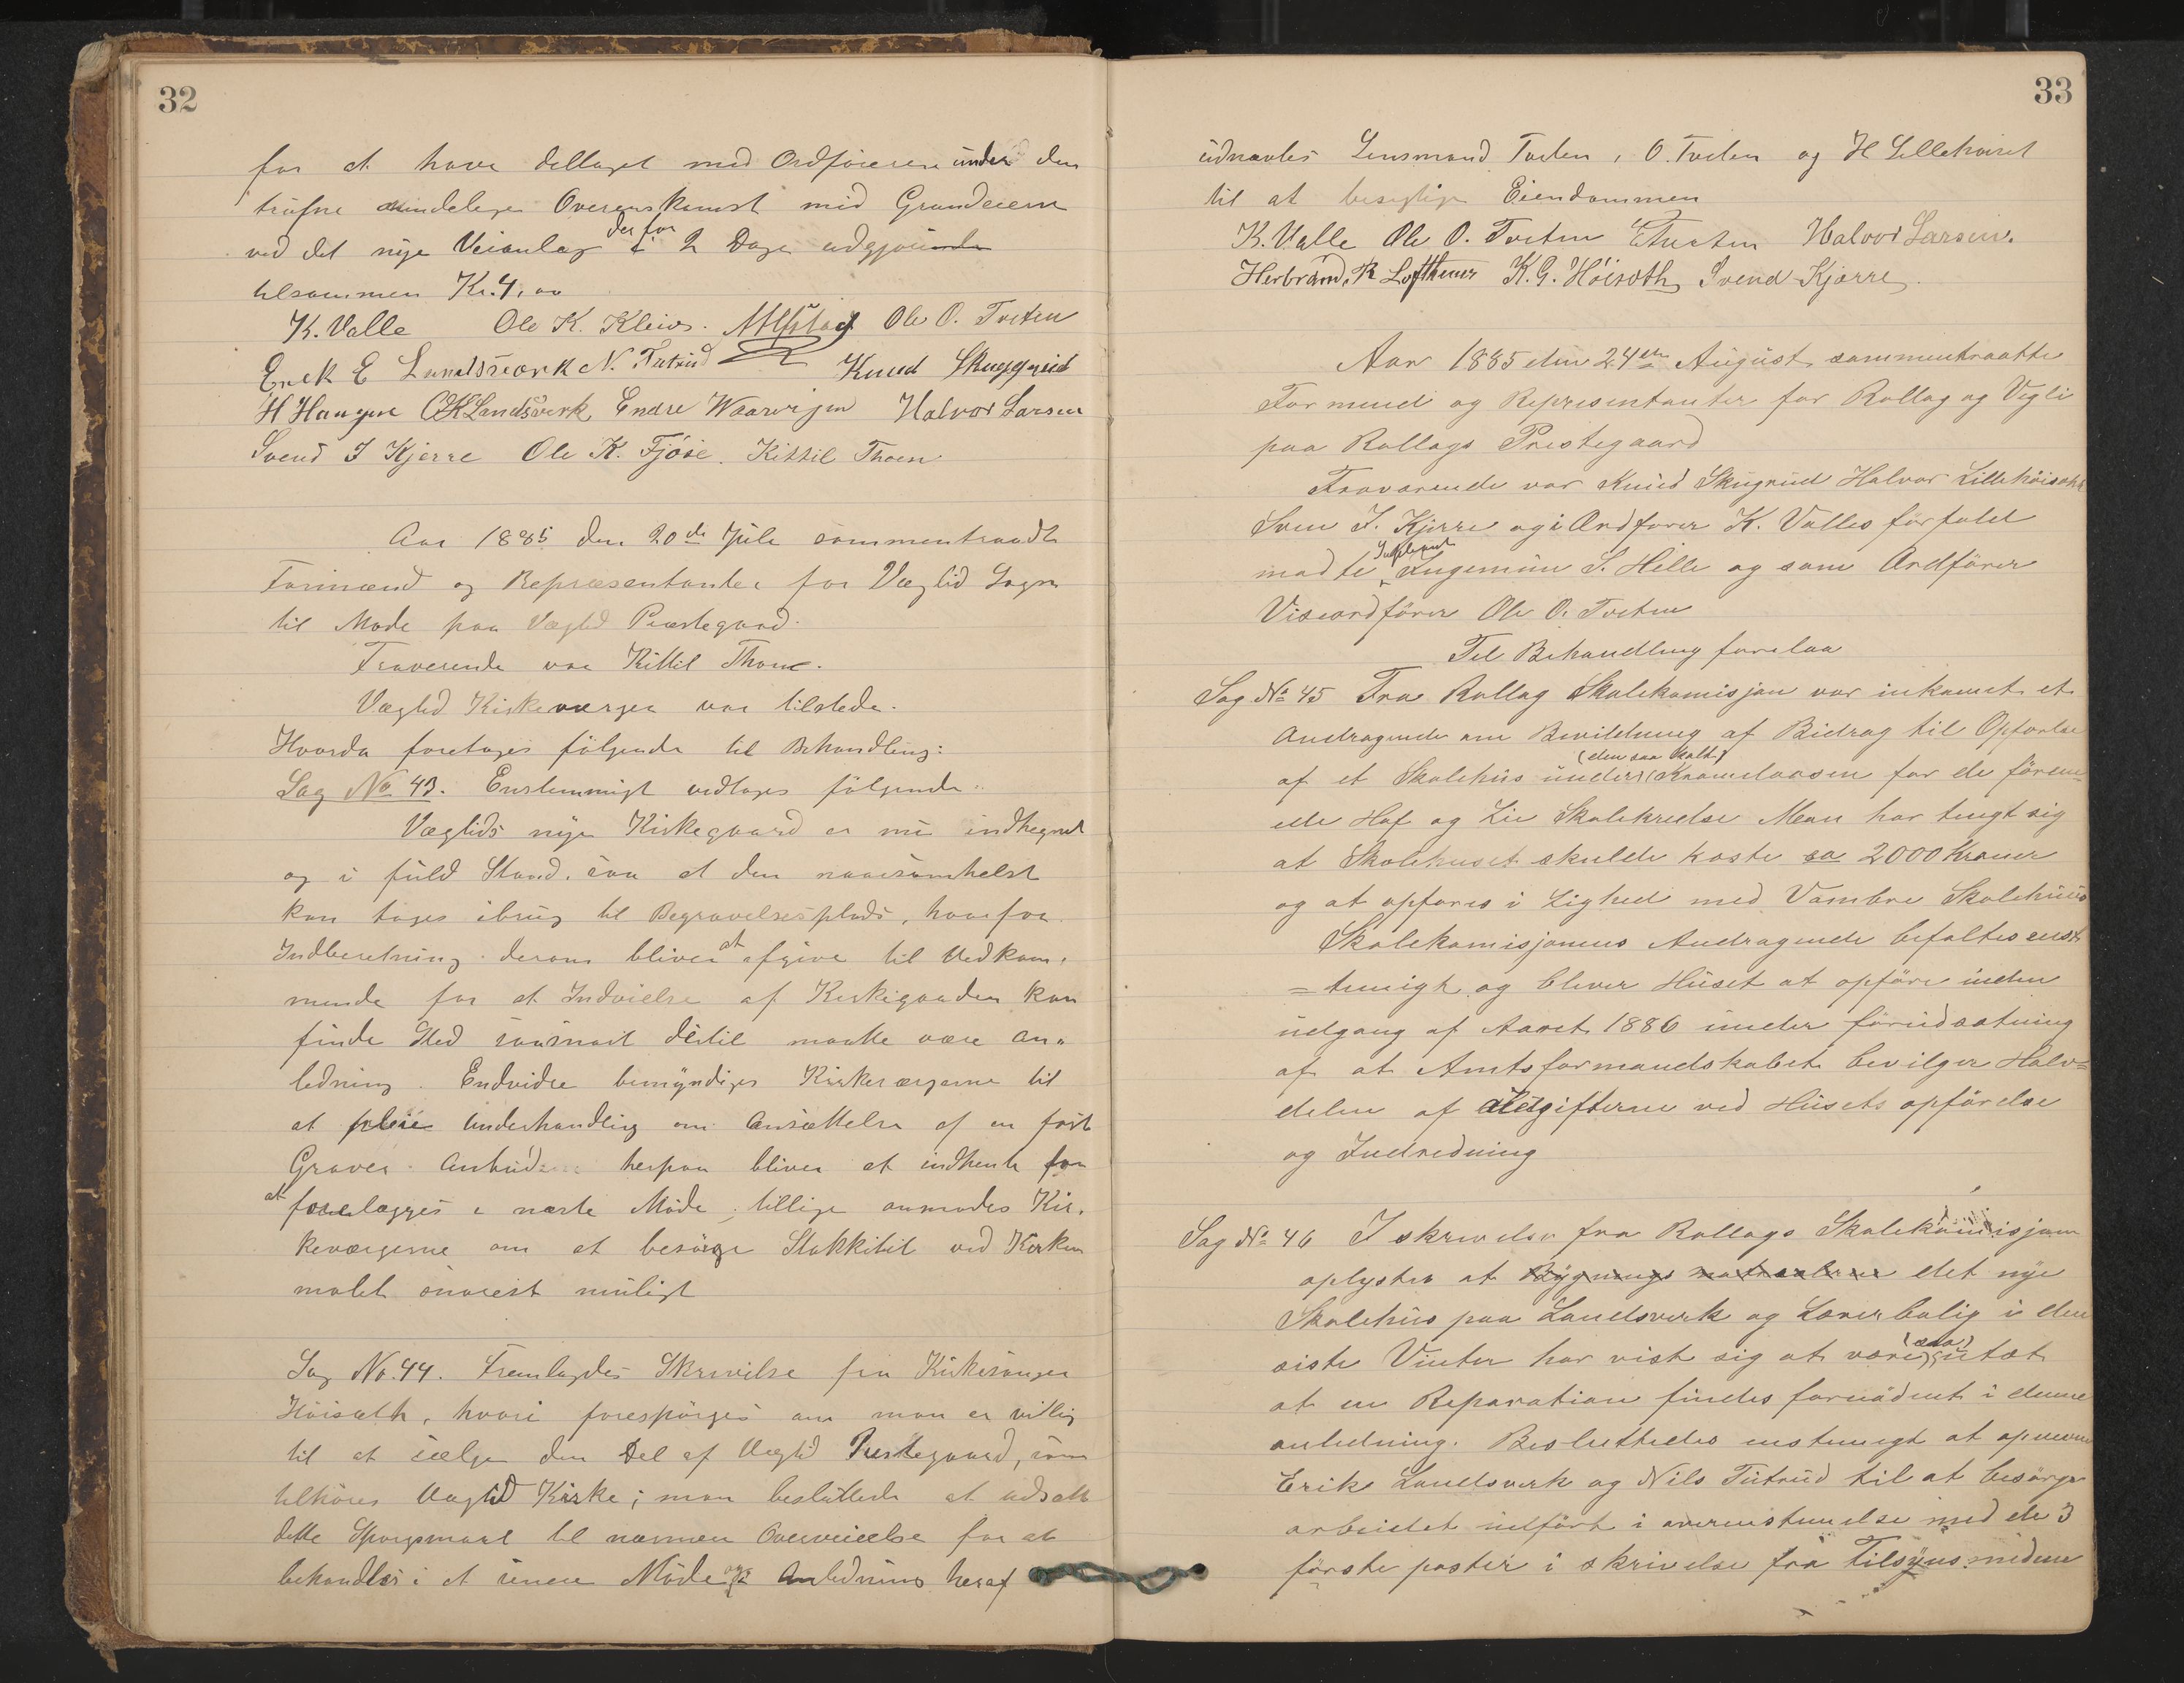 32
for at have deltaget med Ordføreren under den
trufne mindelige Overenskomst med Grundeierne
ved det nye Veianlæg der for i 2 Dage udgjørende
tilsammen Kr. 4,00
K. Valle Ole K. Kleivs. Ole O. Tveten
Erek E Landsverk N. Tutrud Knud Skuggrud
H Haugen O K Landsverk Endre Waarvigen Halvor Larsen
Svend I Kjerre Ole K. Fjöse. Kittil Thoen
Aar 1885 den 20de Juli sammentraadte
Formænd og Repræsentanter for Væglid Sogn
til Møde paa Væglid Præstegaard.
Fraværende var Kittil Thoen.
Væglid Kirkeværger var tilstede.
Hvorda foretoges fölgende til Behandling:
Sag No 43. Enstemmigt vedtoges fölgende:
Væglids nye Kirkegaard er nu indhegnet
og i fuld Stand, saa at den naarsomhelst
kan tages ibrug til Begravelsesplads, hvorfor
Indberetning derom bliver at afgive til Vedkom-
mende for at Indvielse af Kirkegaarden kan
finde Sted saasnart dertil maatte være An-
ledning. Endvidre bemyndiges Kirkeværgerne til
at pleie Underhandling om Ansættelse af en fast
Graver. Anbud herpaa bliver at indhente for
at forelægges i næste Møde, tillige anmodes Kir-
keværgerne om at besörge Stakkitet ved Kirken
malet snarest muligt
Sag No. 44. Fremlagdes Skrivelse fra Kirkesanger
Höisæth, hvori forespörges om man er villig
til at sælge den Del af Væglid Prestegaard, som
tilhörer Væglid Kirke; man besluttede at udsætte
dette Spørgsmaal til nærmere Overveielse for at
behandles i et senere Möde og i Anledning heraf
33
udnævtes Lensmand Tveten, O. Tveten og H Lillehöiset
til at besigtige Eiendommen
K. Valle Ole O. Tveten ETveten Halvor Larsen.
Herbrand. R Lofthuus K. G. Höiseth Svend Kjerre.
Aar 1885 den 24de August sammentraatte
Formend og Representanter for Rollag og Vegli
paa Rollags Prestegaard
Fraværende var Knud Skugrud Halvor Lillehöiseth
Sven I. Kjerre og i Ordförer K. Valles forfald
mødte Supleant Ingemun S. Helle og som Ordförer
Viseordförer Ole O. Tveten
Til Behandling forelaa
Sag No 45 Fra Rollag Skolekomisjon var inkomet et
Andragende om Bevildning af Bidrag til Opførelse
af et Skolehus under (den saa kalt) Kramdaasen for de fören-
ede Hof og Lie Skolekredse Man har tengt sig
at Skolehuset skulde koste ca 2000 Kroner
og at opføres i Lighed med Vambre Skolehuus
Skolekomisjonens Andragende befaltes enst
=temigt og bliver Huset at opføre inden
udgang af Aaret 1886 under förudsætning
af at Amtsformandskabet bevilger Halv=
delen af Utgifterne ved Husets opförelse
og Indredning
Sag No 46 I skrivelse fra Rollags Skolekomisjon
oplystes at Bygnings materialerne det nye
Skolehus paa Landsverk og Lærerbolig i den
siste Vinter har vist sig at være (saa) utæt
at en Reparation findes fornödent i denne
anledning. Besluttedes enstemigt at opnevne
Erik Landsverk og Nils Tutrud til at besörge
arbeidet udfört i overenstemelse med de 3
förste poster i skrivelse fra Tilsynsmidene